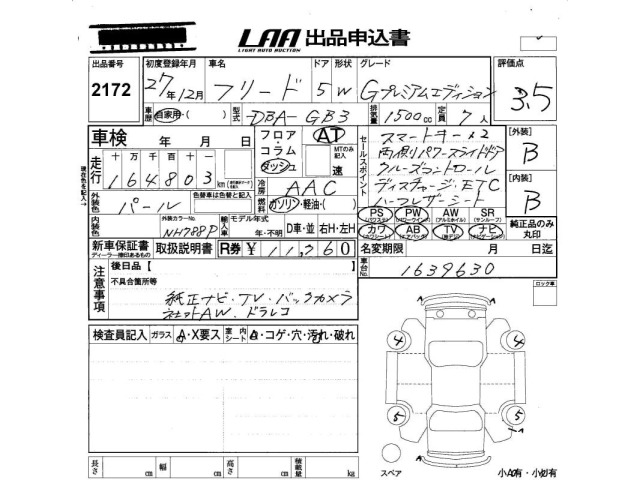 LAA 出品申込書
LIGHT AUTO AUCTION
出品番号 初度登録年月 車名 ドア 形状 グレード 評価点
2172 27年12月 フリード 5 W Gプレミアムエディション 3.5
車歴 自家用・( ) 型式 DBA-GB3 排気量 1500cc 定員 7人
車検 年 月 日 フロア・コラム ダッシュ AT MTのみ記入 速
走行 十万千百十
164803 km
冷房 AAC
外装色 パール 色替車は色替と記入 燃料 ガソリン・軽油・( )
外装カラーNo. NH788P 輸入車 モデル年式 年・不明 D車・並 右H・左H
セールスポイント スマートキー×2
両側パワースライドドア
クルーズコントロール
ディスチャージ・ETC
ハーフレザーシート
[外装] B
[内装] B
PS (パワステ) PW (パワーウインド) AW (アルミホイル) SR (サンルーフ)
カワ AB (エアバッグ) TV ナビ (ナビゲーション)
純正品のみ丸印
新車保証書 取扱説明書 R券 ¥11,260 名変期限 月 日迄
ディーラー捺印あるもの
車台No. 1639630
注意事項 後日品【
不具合箇所等
純正ナビ・TV・バックカメラ
社外AW、ドラレコ
ロック車
検査員記入 ガラス A・X要ス 室内シート A・コゲ・穴・汚れ・破れ
4 4
5 5
A A
長さ cm 幅 cm 高さ cm 積載量 kg
スペア
小A有・小U有